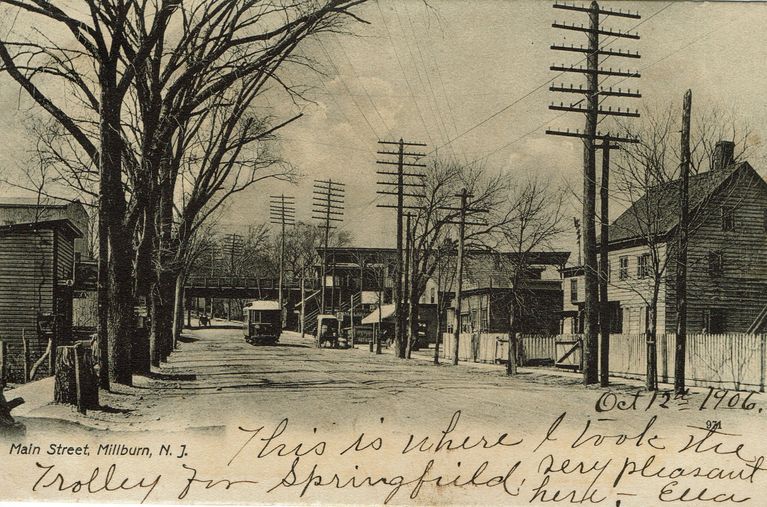 Oct 12th 1906.
971
Main Street, Millburn, N. J.
This is where I took the
Trolley For Springfield, very pleasant
here – Ella